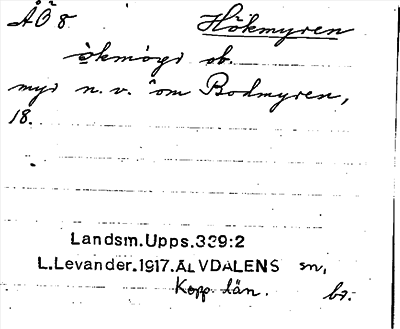 ÅÖ 8. Hökmyren
ökmögı ob.
myr n. v. om Bodmyren,
18.
Landsm.Upps.339:2
L.Levander.1917.ÄLVDALENS sn,
Kopp. län. br.